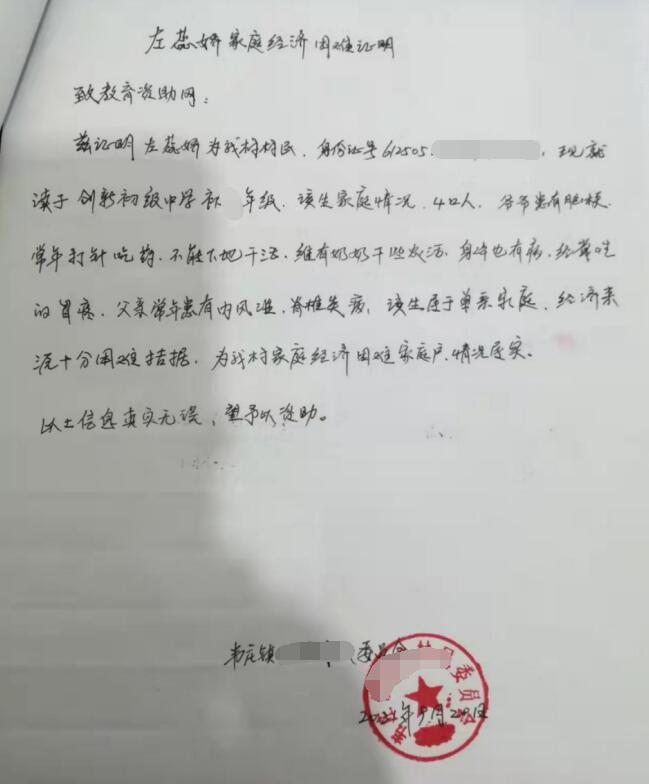 左蕊娇家庭经济困难证明
致教育资助网：
兹证明左蕊娇为我村村民，身份证号612505，现就
读于创新初级中学初年级．该生家庭情况．4口人．爷爷患有脑梗．
常年打针吃药．不能下地干活．维有奶奶干些农活．身体也有病，经常性
的胃疼．父亲常年患有内风湿．脊椎炎病，该生属于单亲家庭．经济来
源十分困难拮据．为我村家庭经济困难家庭户．情况属实。
以上信息真实无误，望予以资助。
韦庄镇委员会
村民委员会
2021年9月20日